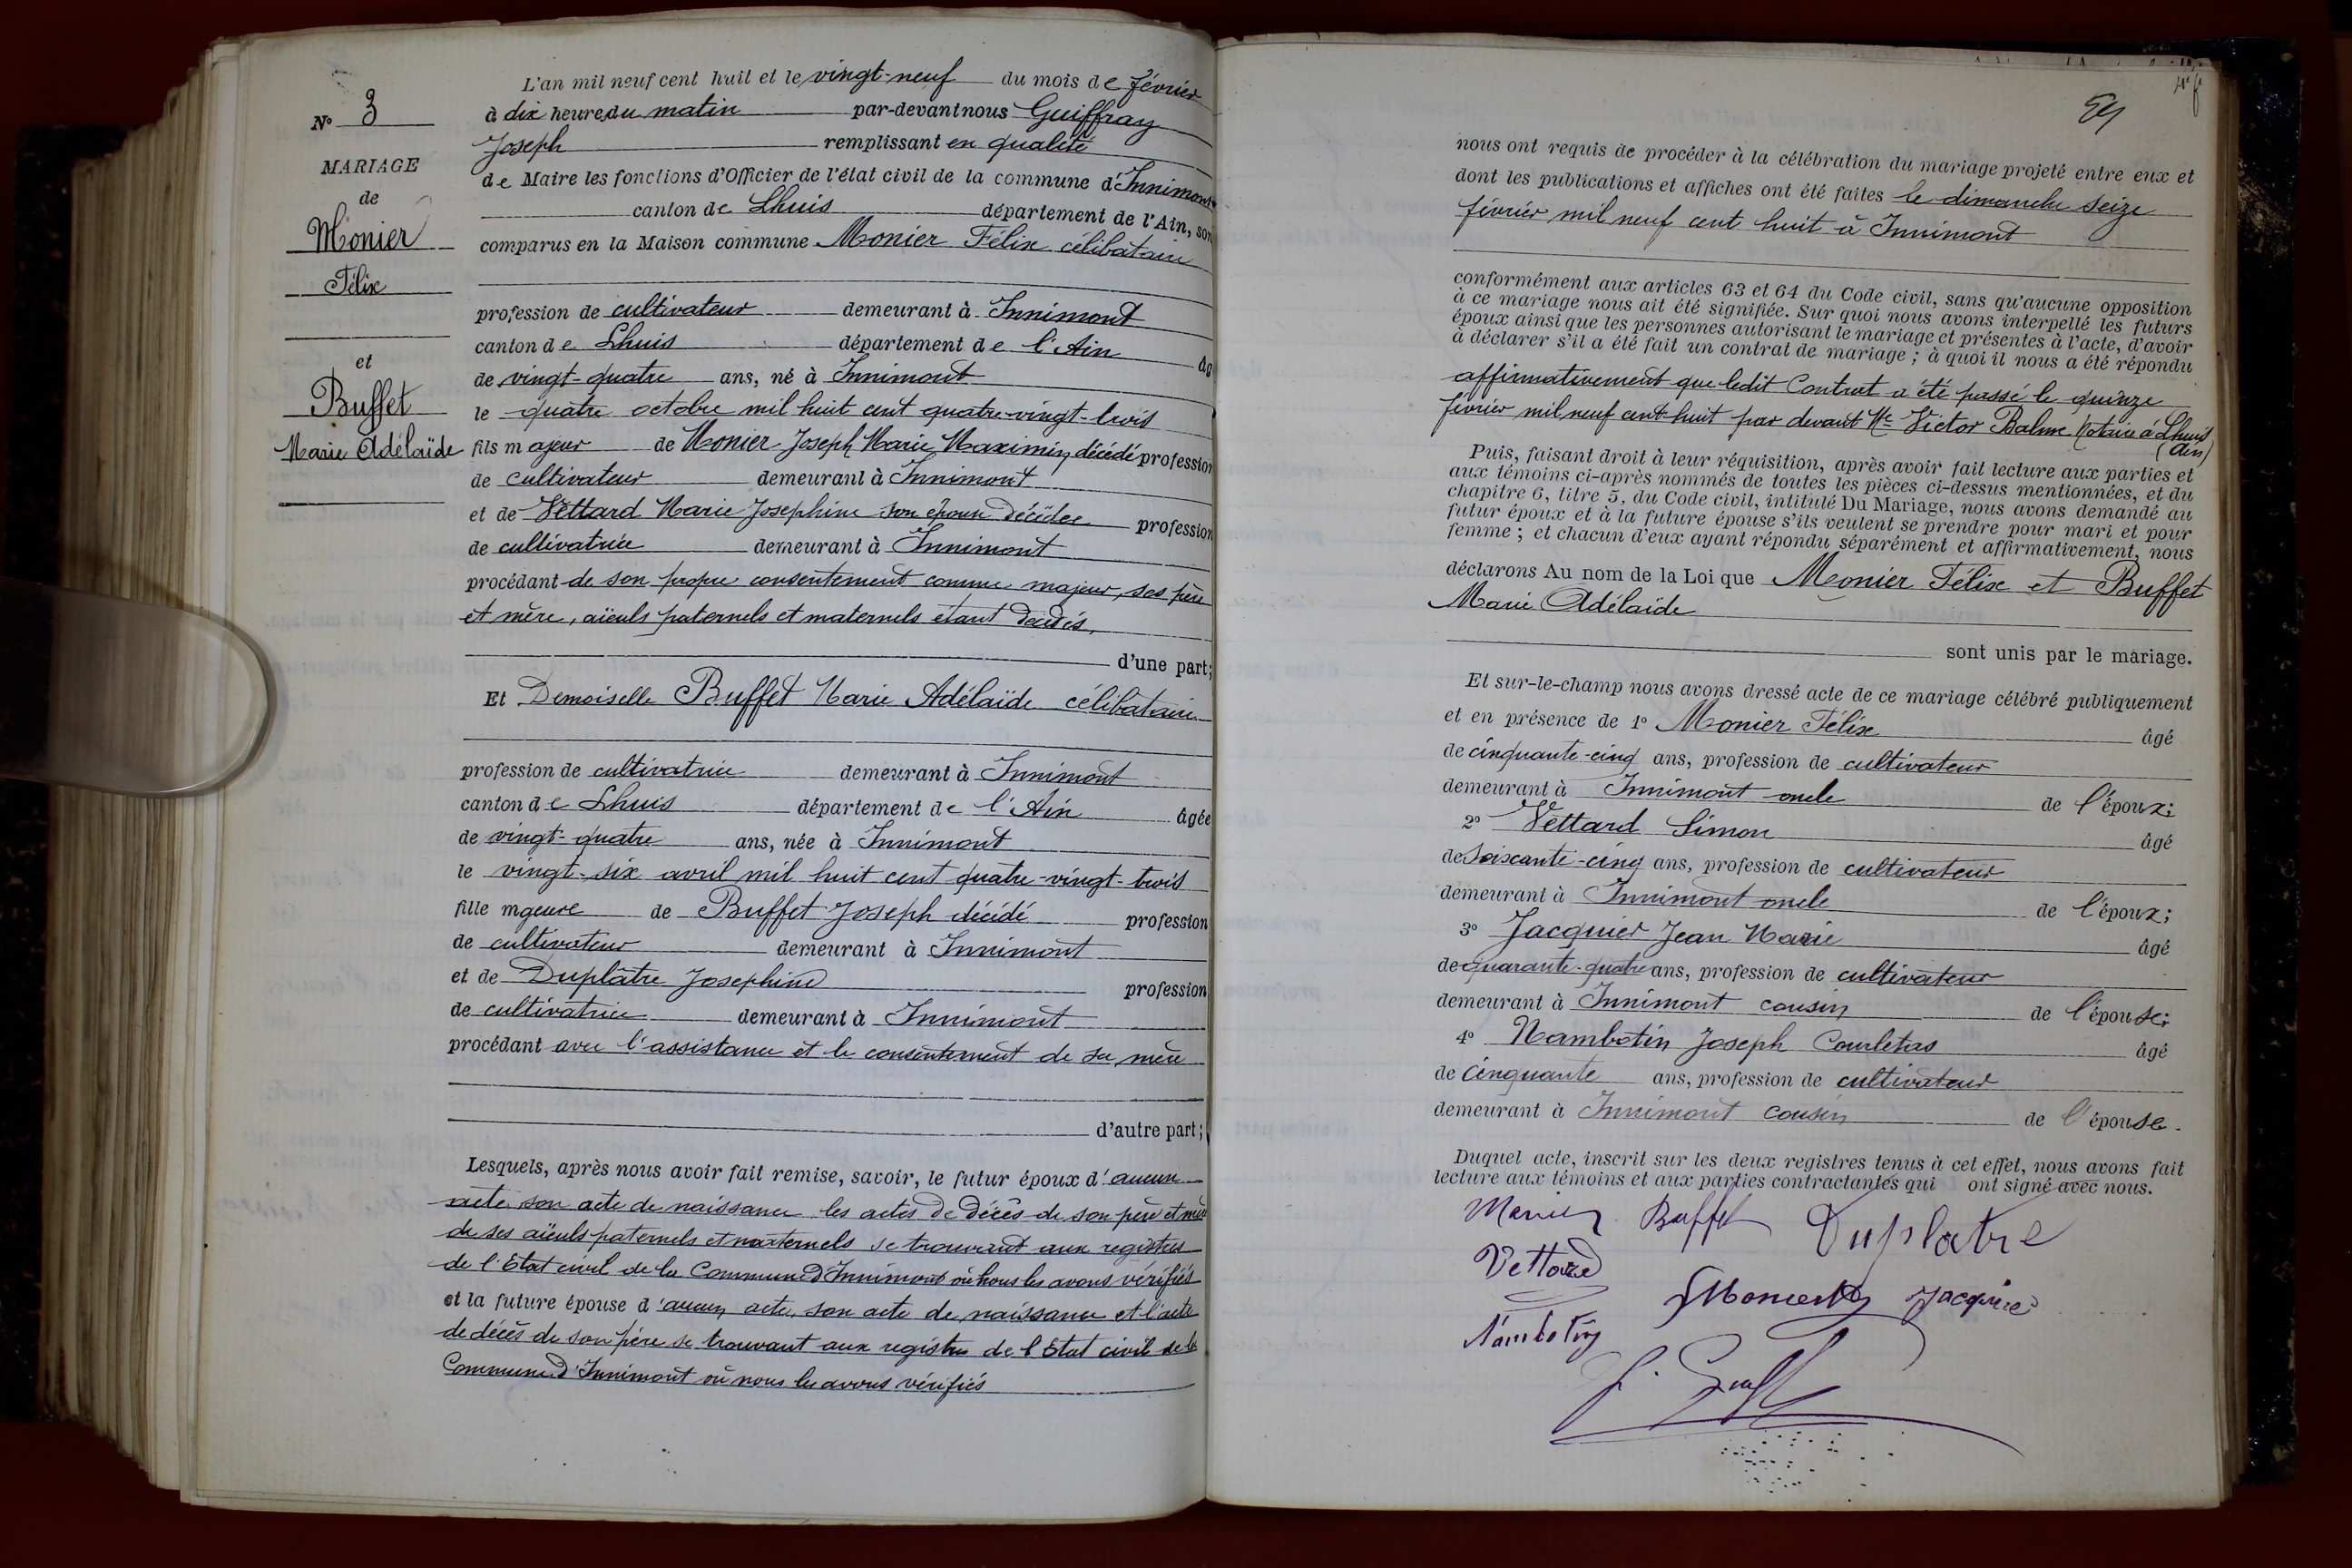 N° 3
MARIAGE
de
Monier
Félix
et
Buffet
Marie Adélaïde
L'an mil neuf cent huit et le vingt-neuf du mois de février
à dix heures du matin par-devant nous Guiffray
Joseph remplissant en qualité
de Maire les fonctions d'Officier de l'état civil de la commune d'Innimont
canton de Lhuis département de l'Ain, son
comparus en la Maison commune Monier Félix célibataire
profession de cultivateur demeurant à Innimont
canton de Lhuis département de l'Ain âg
de vingt-quatre ans, né à Innimont
le quatre octobre mil huit cent quatre-vingt-trois
fils majeur de Monier Joseph Marie Maximin décédé profession
de cultivateur demeurant à Innimont
et de Vettard Marie Josephine son épouse décédée profession
de cultivatrice demeurant à Innimont
procédant de son propre consentement comme majeur, ses père
et mère, aïeuls paternels et maternels étant décédés,
d'une part;
Et Demoiselle Buffet Marie Adélaïde célibataire
profession de cultivatrice demeurant à Innimont
canton de Lhuis département de l'Ain âgée
de vingt-quatre ans, née à Innimont
le vingt-six avril mil huit cent quatre-vingt-trois
fille mgeure de Buffet Joseph décédé profession
de cultivateur demeurant à Innimont
et de Duplâtre Josephine profession
de cultivatrice demeurant à Innimont
procédant avec l'assistance et le consentement de sa mère
d'autre part;
Lesquels, après nous avoir fait remise, savoir, le futur époux d'aucun
acte, son acte de naissance les actes de décès de son père et mère
de ses aïeuls paternels et maternels se trouvant aux registres
de l'Etat civil de la Commune d'Innimont où nous les avons vérifiés
et la future épouse d'aucun acte, son acte de naissance et l'acte
de décès de son père se trouvant aux registres de l'Etat civil de la
Commune d'Innimont où nous les avons vérifiés
nous ont requis de procéder à la célébration du mariage projeté entre eux et
dont les publications et affiches ont été faites le dimanche seize
février mil neuf cent huit à Innimont
conformément aux articles 63 et 64 du Code civil, sans qu'aucune opposition
à ce mariage nous ait été signifiée. Sur quoi nous avons interpellé les futurs
époux ainsi que les personnes autorisant le mariage et présentes à l'acte, d'avoir
à déclarer s'il a été fait un contrat de mariage; à quoi il nous a été répondu
affirmativement que ledit Contrat a été passé le quinze
février mil neuf cent huit par devant Me Victor Balme Notaire à Lhuis
(Ain)
Puis, faisant droit à leur réquisition, après avoir fait lecture aux parties et
aux témoins ci-après nommés de toutes les pièces ci-dessus mentionnées, et du
chapitre 6, titre 5, du Code civil, intitulé Du Mariage, nous avons demandé au
futur époux et à la future épouse s'ils veulent se prendre pour mari et pour
femme; et chacun d'eux ayant répondu séparément et affirmativement, nous
déclarons Au nom de la Loi que Monier Félix et Buffet
Marie Adélaïde
sont unis par le mariage.
Et sur-le-champ nous avons dressé acte de ce mariage célébré publiquement
et en présence de 1° Monier Félix âgé
de cinquante-cinq ans, profession de cultivateur
demeurant à Innimont oncle de l'époux;
2° Vettard Simon âgé
de Soixante-cinq ans, profession de cultivateur
demeurant à Innimont oncle de l'époux;
3° Jacquier Jean Marie âgé
de quarante-quatre ans, profession de cultivateur
demeurant à Innimont cousin de l'épouse;
4° Nambotin Joseph Courletas âgé
de cinquante ans, profession de cultivateur
demeurant à Innimont cousin de l'épouse.
Duquel acte, inscrit sur les deux registres tenus à cet effet, nous avons fait
lecture aux témoins et aux parties contractantes qui ont signé avec nous.
Monier Buffet Duplatre
Vettard
Jacquier
Nambotin